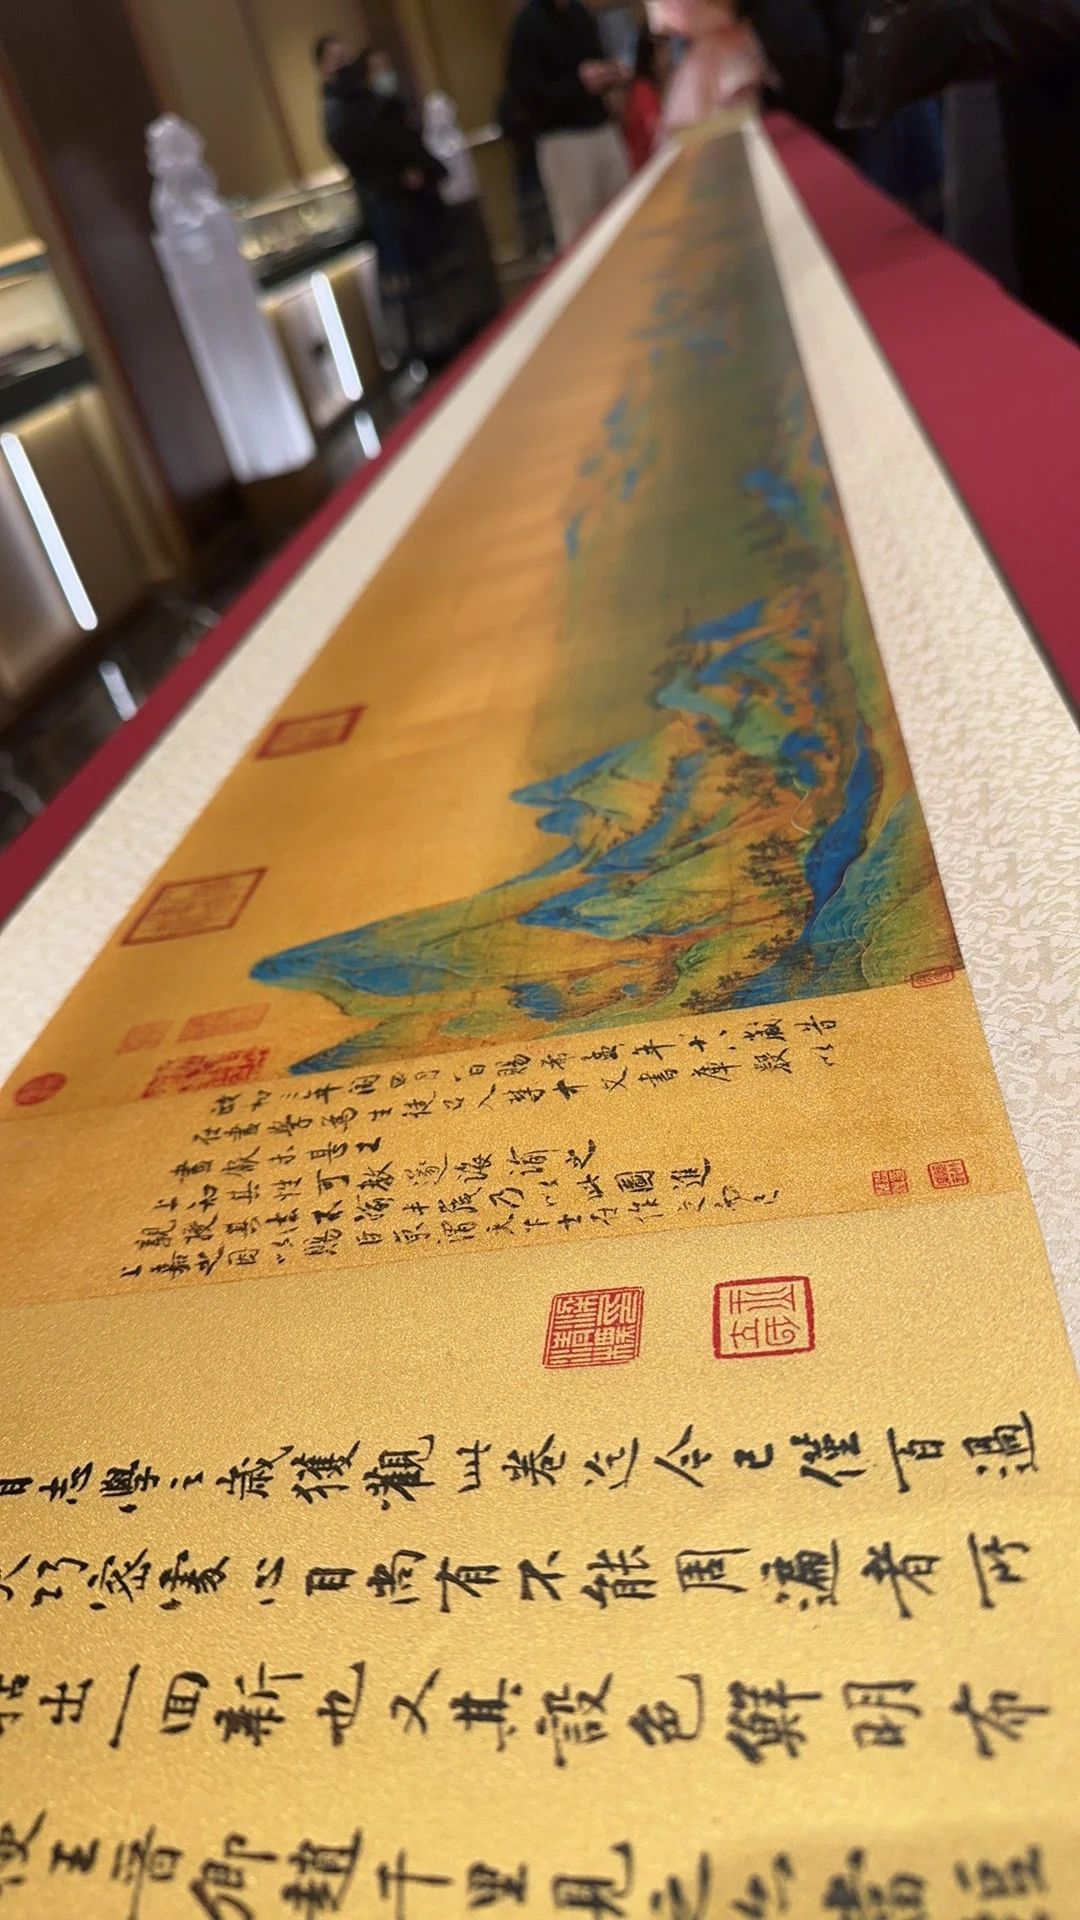 政和三年閏四月八日賜希孟年十八歲昔
在畫學為生徒召入禁中文書庫數以
畫獻未甚工
上知其性可教遂誨諭之
親授其法不踰半歲乃以此圖進
上嘉之因以賜臣京謂天下士在作之而已
自志學之歲獲觀此卷迄今已僅百過
巧密處心目尚有不能周遍者所
出一回新也又其設色鮮明布
王晉卿趙千里見之亦當短